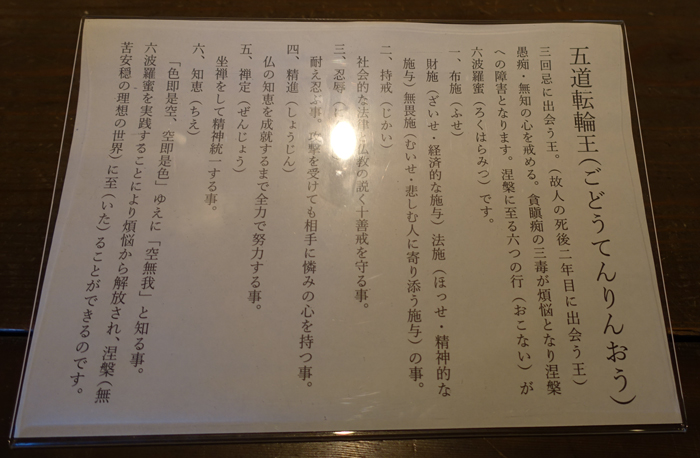 五道転輪王(ごどうてんりんおう)
三回忌に出会う王。(故人の死後二年目に出会う王)
愚痴・無知の心を戒める。貪瞋痴の三毒が煩悩となり涅槃
への障害となります。涅槃に至る六つの行(おこない)が
六波羅蜜(ろくはらみつ)です。
一、布施(ふせ)
財施(ざいせ・経済的な施与)法施(ほっせ・精神的な
施与)無畏施(むいせ・悲しむ人に寄り添う施与)の事。
二、持戒(じかい)
社会的な法律や仏教の説く十善戒を守る事。
三、忍辱
耐え忍ぶ事。攻撃を受けても相手に憐みの心を持つ事。
四、精進(しょうじん)
仏の知恵を成就するまで全力で努力する事。
五、禅定(ぜんじょう)
坐禅をして精神統一する事。
六、知恵(ちえ)
「色即是空、空即是色」ゆえに「空無我」と知る事。
六波羅蜜を実践することにより煩悩から解放され、涅槃(無
苦安穏の理想の世界)に至(いた)ることができるのです。